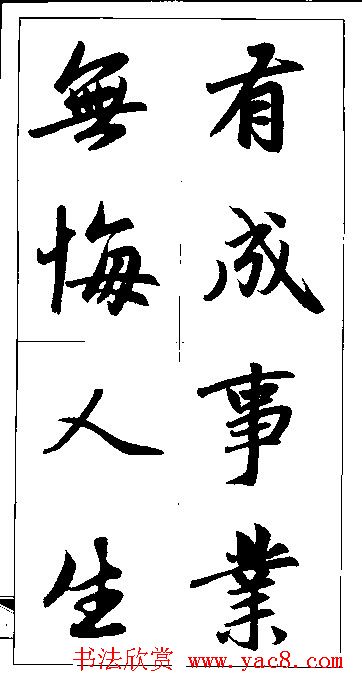 有成事業
無悔人生
书法欣赏 www.yac8.com